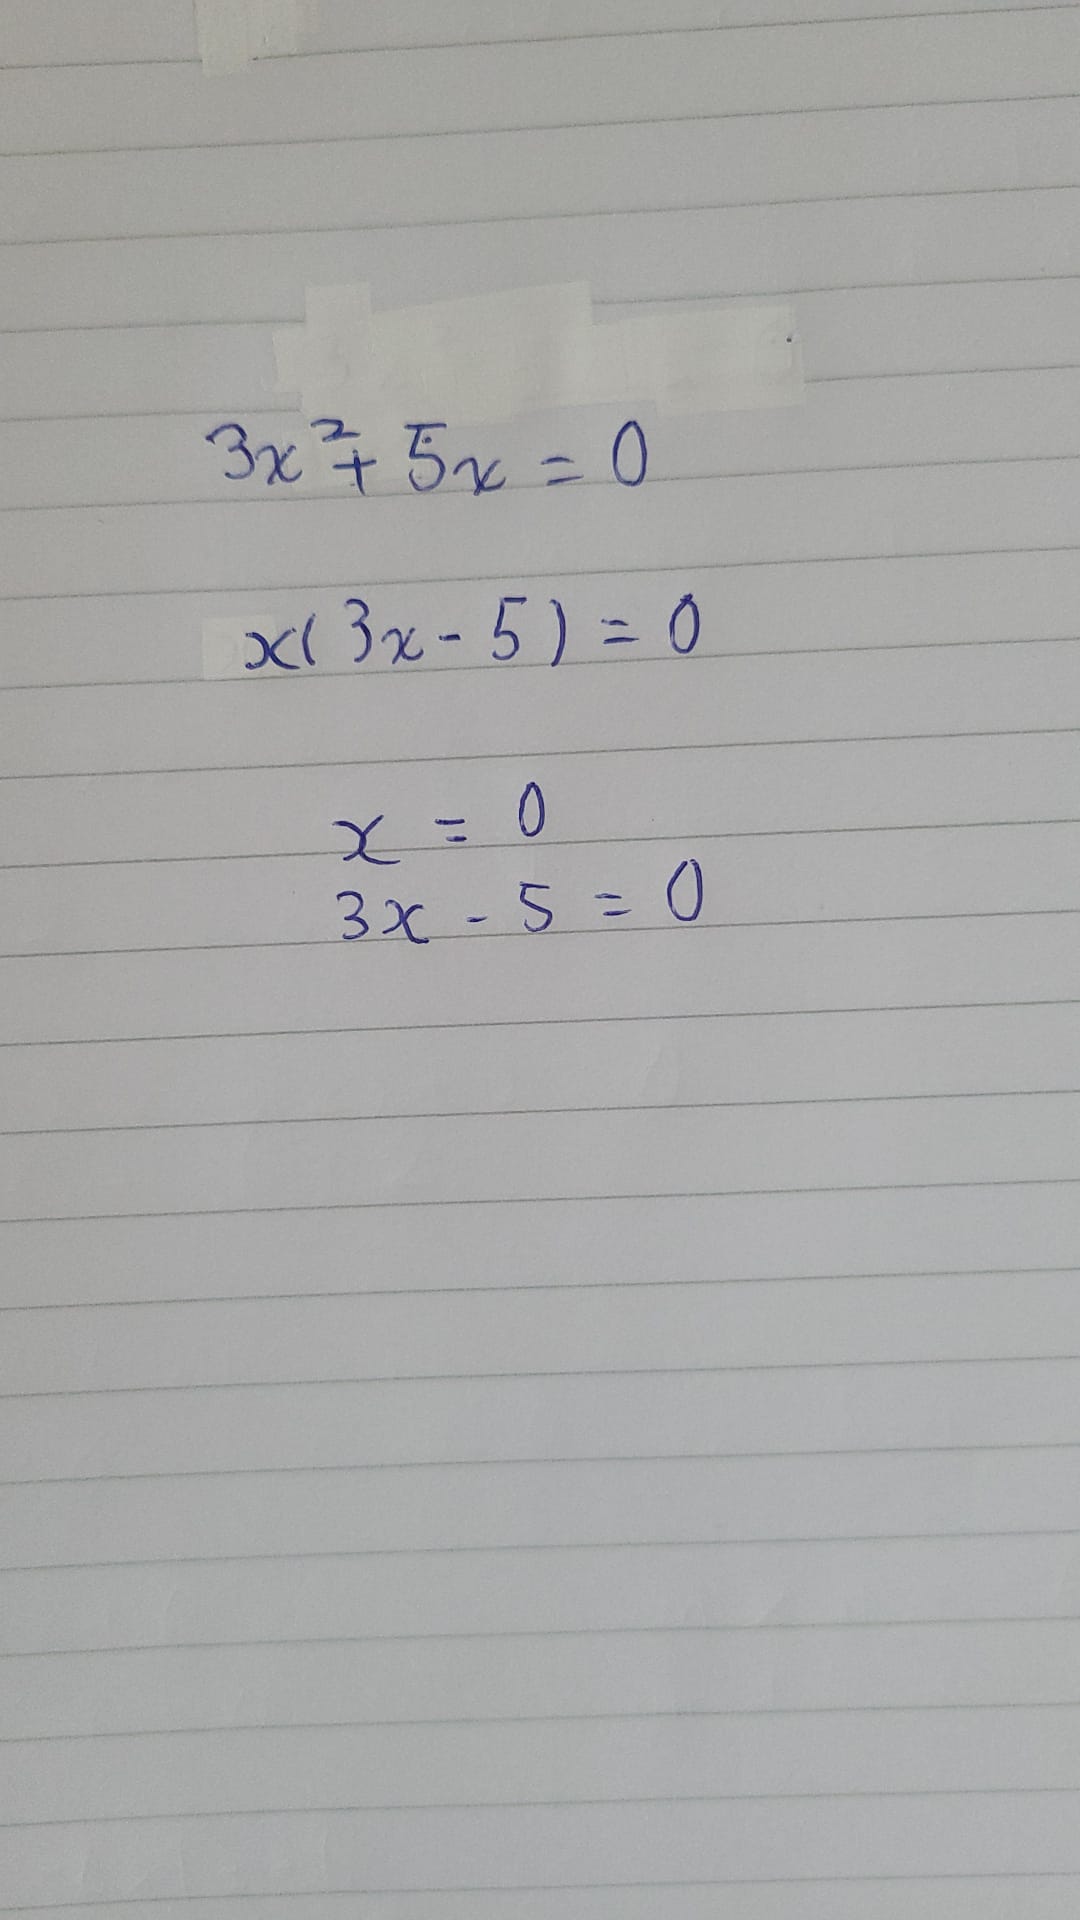 3x² + 5x = 0
x(3x - 5) = 0
x = 0
3x - 5 = 0